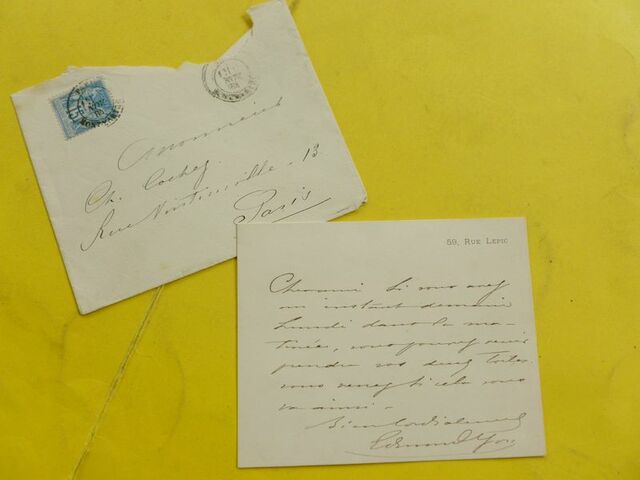 Monsieur
Ch. Cochez
Rue Vintimille. 13
Paris
59, RUE LEPIC
Cher ami Si vous avez
un instant demain
Lundi dans la ma-
tinée, vous pouvez venir
prendre vos deux toiles.
vous venez si cela vous
va ainsi -
Bien Cordialement
Edmond Yon